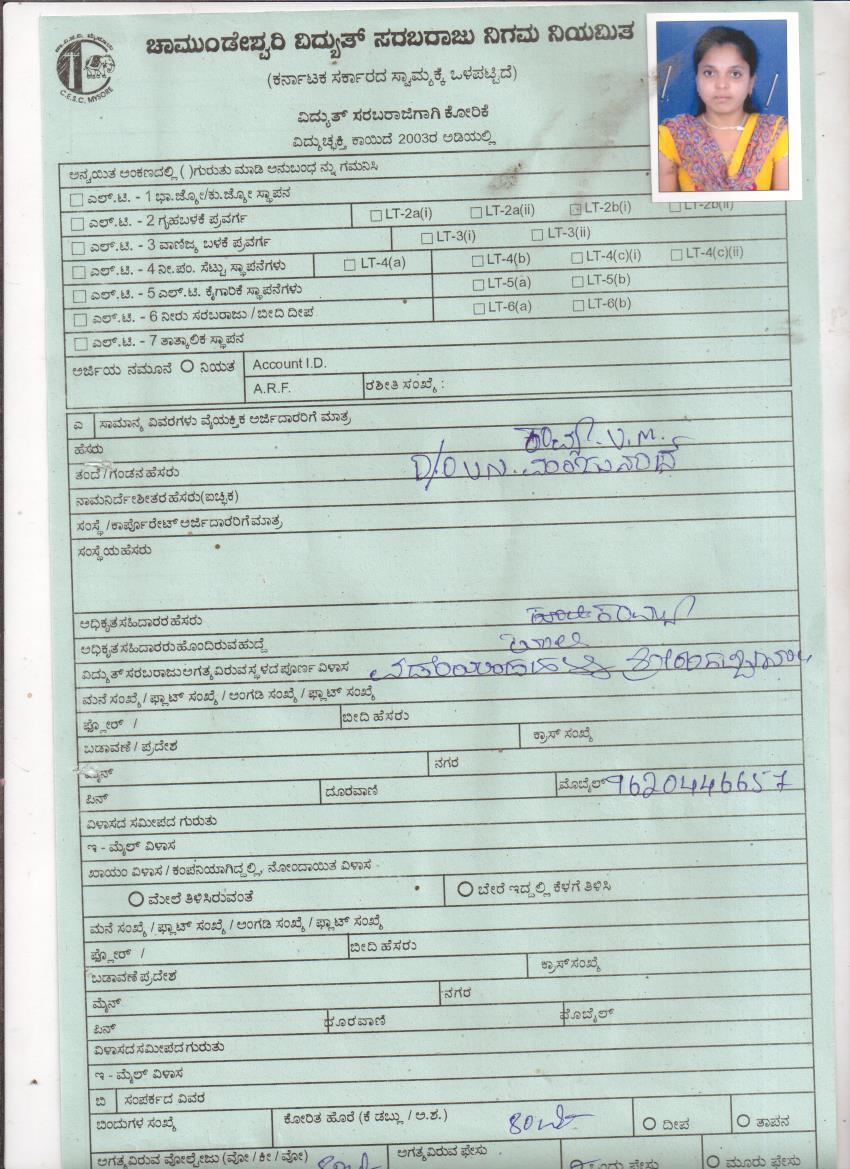 ಚಾಮುಂಡೇಶ್ವರಿ ವಿದ್ಯುತ್ ಸರಬರಾಜು ನಿಗಮ ನಿಯಮಿತ
C.E.S.C. MYSORE
(ಕರ್ನಾಟಕ ಸರ್ಕಾರದ ಸ್ವಾಮ್ಯಕ್ಕೆ ಒಳಪಟ್ಟಿದೆ)
ವಿದ್ಯುತ್ ಸರಬರಾಜಿಗಾಗಿ ಕೋರಿಕೆ
ವಿದ್ಯುಚ್ಛಕ್ತಿ ಕಾಯಿದೆ 2003ರ ಅಡಿಯಲ್ಲಿ
ಅನ್ವಯಿತ ಅಂಕಣದಲ್ಲಿ ( )ಗುರುತು ಮಾಡಿ ಅನುಬಂಧ ನ್ನು ಗಮನಿಸಿ
ಎಲ್.ಟಿ. - 1 ಭಾ.ಜ್ಯೋ/ಕು.ಜ್ಯೋ ಸ್ಥಾಪನ
ಎಲ್.ಟಿ. - 2 ಗೃಹಬಳಕೆ ಪ್ರವರ್ಗ LT-2a(i) LT-2a(ii) LT-2b(i) LT-2b(ii)
ಎಲ್.ಟಿ. - 3 ವಾಣಿಜ್ಯ ಬಳಕೆ ಪ್ರವರ್ಗ LT-3(i) LT-3(ii)
ಎಲ್.ಟಿ. - 4 ನೀ.ಪಂ. ಸೆಟ್ಟು ಸ್ಥಾಪನೆಗಳು LT-4(a) LT-4(b) LT-4(c)(i) LT-4(c)(ii)
ಎಲ್.ಟಿ. - 5 ಎಲ್.ಟಿ. ಕೈಗಾರಿಕೆ ಸ್ಥಾಪನೆಗಳು LT-5(a) LT-5(b)
ಎಲ್.ಟಿ. - 6 ನೀರು ಸರಬರಾಜು / ಬೀದಿ ದೀಪ LT-6(a) LT-6(b)
ಎಲ್.ಟಿ. - 7 ತಾತ್ಕಾಲಿಕ ಸ್ಥಾಪನ
ಅರ್ಜಿಯ ನಮೂನೆ ನಿಯತ Account I.D.
A.R.F. ರಶೀತಿ ಸಂಖ್ಯೆ :
ಎ ಸಾಮಾನ್ಯ ವಿವರಗಳು ವೈಯಕ್ತಿಕ ಅರ್ಜಿದಾರರಿಗೆ ಮಾತ್ರ
ಹೆಸರು V.M.
ತಂದೆ / ಗಂಡನ ಹೆಸರು D/O V.N. ಮಂಜುನಾಥ
ನಾಮನಿರ್ದೇಶಿತರ ಹೆಸರು(ಐಚ್ಛಿಕ)
ಸಂಸ್ಥೆ / ಕಾರ್ಪೊರೇಟ್ ಅರ್ಜಿದಾರರಿಗೆ ಮಾತ್ರ
ಸಂಸ್ಥೆಯ ಹೆಸರು
ಅಧಿಕೃತ ಸಹಿದಾರರ ಹೆಸರು
ಅಧಿಕೃತ ಸಹಿದಾರರು ಹೊಂದಿರುವ ಹುದ್ದೆ
ವಿದ್ಯುತ್ ಸರಬರಾಜು ಅಗತ್ಯವಿರುವ ಸ್ಥಳದ ಪೂರ್ಣ ವಿಳಾಸ
ಮನೆ ಸಂಖ್ಯೆ / ಫ್ಲಾಟ್ ಸಂಖ್ಯೆ / ಅಂಗಡಿ ಸಂಖ್ಯೆ / ಫ್ಲಾಟ್ ಸಂಖ್ಯೆ
ಫ್ಲೋರ್ / ಬೀದಿ ಹೆಸರು
ಬಡಾವಣೆ / ಪ್ರದೇಶ ಕ್ರಾಸ್ ಸಂಖ್ಯೆ
ಮೈನ್ ನಗರ
ಪಿನ್ ದೂರವಾಣಿ ಮೊಬೈಲ್ 9620446657
ವಿಳಾಸದ ಸಮೀಪದ ಗುರುತು
ಇ - ಮೈಲ್ ವಿಳಾಸ
ಖಾಯಂ ವಿಳಾಸ / ಕಂಪನಿಯಾಗಿದ್ದಲ್ಲಿ, ನೋಂದಾಯಿತ ವಿಳಾಸ
ಮೇಲೆ ತಿಳಿಸಿರುವಂತೆ ಬೇರೆ ಇದ್ದಲ್ಲಿ ಕೆಳಗೆ ತಿಳಿಸಿ
ಮನೆ ಸಂಖ್ಯೆ / ಫ್ಲಾಟ್ ಸಂಖ್ಯೆ / ಅಂಗಡಿ ಸಂಖ್ಯೆ / ಫ್ಲಾಟ್ ಸಂಖ್ಯೆ
ಫ್ಲೋರ್ / ಬೀದಿ ಹೆಸರು
ಬಡಾವಣೆ ಪ್ರದೇಶ ಕ್ರಾಸ್ ಸಂಖ್ಯೆ
ಮೈನ್ ನಗರ
ಪಿನ್ ದೂರವಾಣಿ ಮೊಬೈಲ್
ವಿಳಾಸದ ಸಮೀಪದ ಗುರುತು
ಇ - ಮೈಲ್ ವಿಳಾಸ
ಬಿ ಸಂಪರ್ಕದ ವಿವರ
ಬಿಂದುಗಳ ಸಂಖ್ಯೆ ಕೋರಿತ ಹೊರೆ (ಕೆ ಡಬ್ಲು / ಅ.ಶ.) ದೀಪ ತಾಪನ
ಅಗತ್ಯವಿರುವ ವೋಲ್ಟೇಜು (ವೋ / ಕೀ / ವೋ) ಅಗತ್ಯವಿರುವ ಫೇಸು ಒಂದು ಫೇಸು ಮೂರು ಫೇಸು